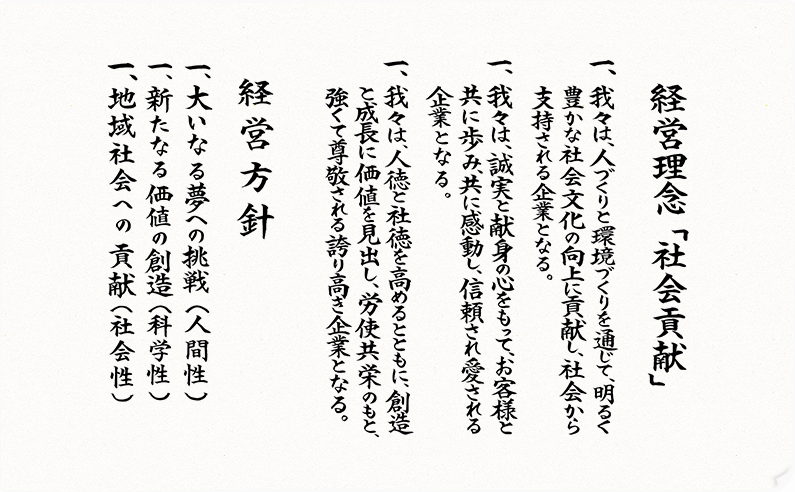 経営理念「社会貢献」
一、我々は、人づくりと環境づくりを通じて、明るく
豊かな社会文化の向上に貢献し、社会から
支持される企業となる。
一、我々は、誠実と献身の心をもって、お客様と
共に歩み、共に感動し、信頼され愛される
企業となる。
一、我々は、人徳と社徳を高めるとともに、創造
と成長に価値を見出し、労使共栄のもと、
強くて尊敬される誇り高き企業となる。
経営方針
一、大いなる夢への挑戦（人間性）
一、新たなる価値の創造（科学性）
一、地域社会への貢献（社会性）